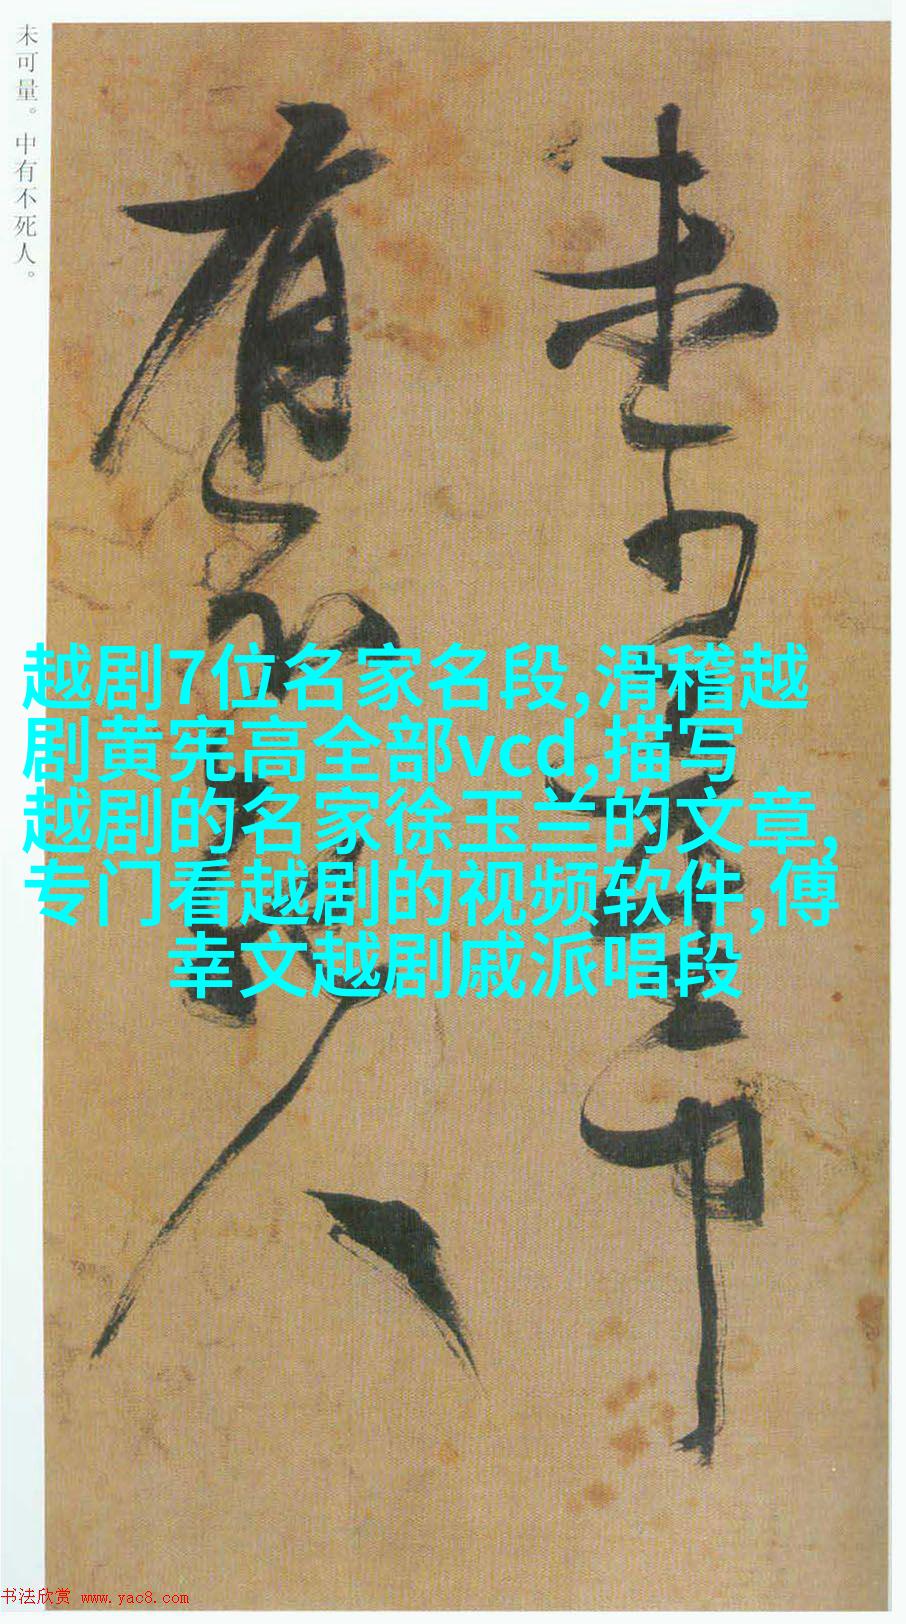 未可量。中有不死人。
未可量中
有不死人
越剧7位名家名段,滑稽越
剧黄宪高全部vcd,描写
越剧的名家徐玉兰的文章,
专门看越剧的视频软件,傅
幸文越剧戚派唱段
书法欣赏 www.yac8.com